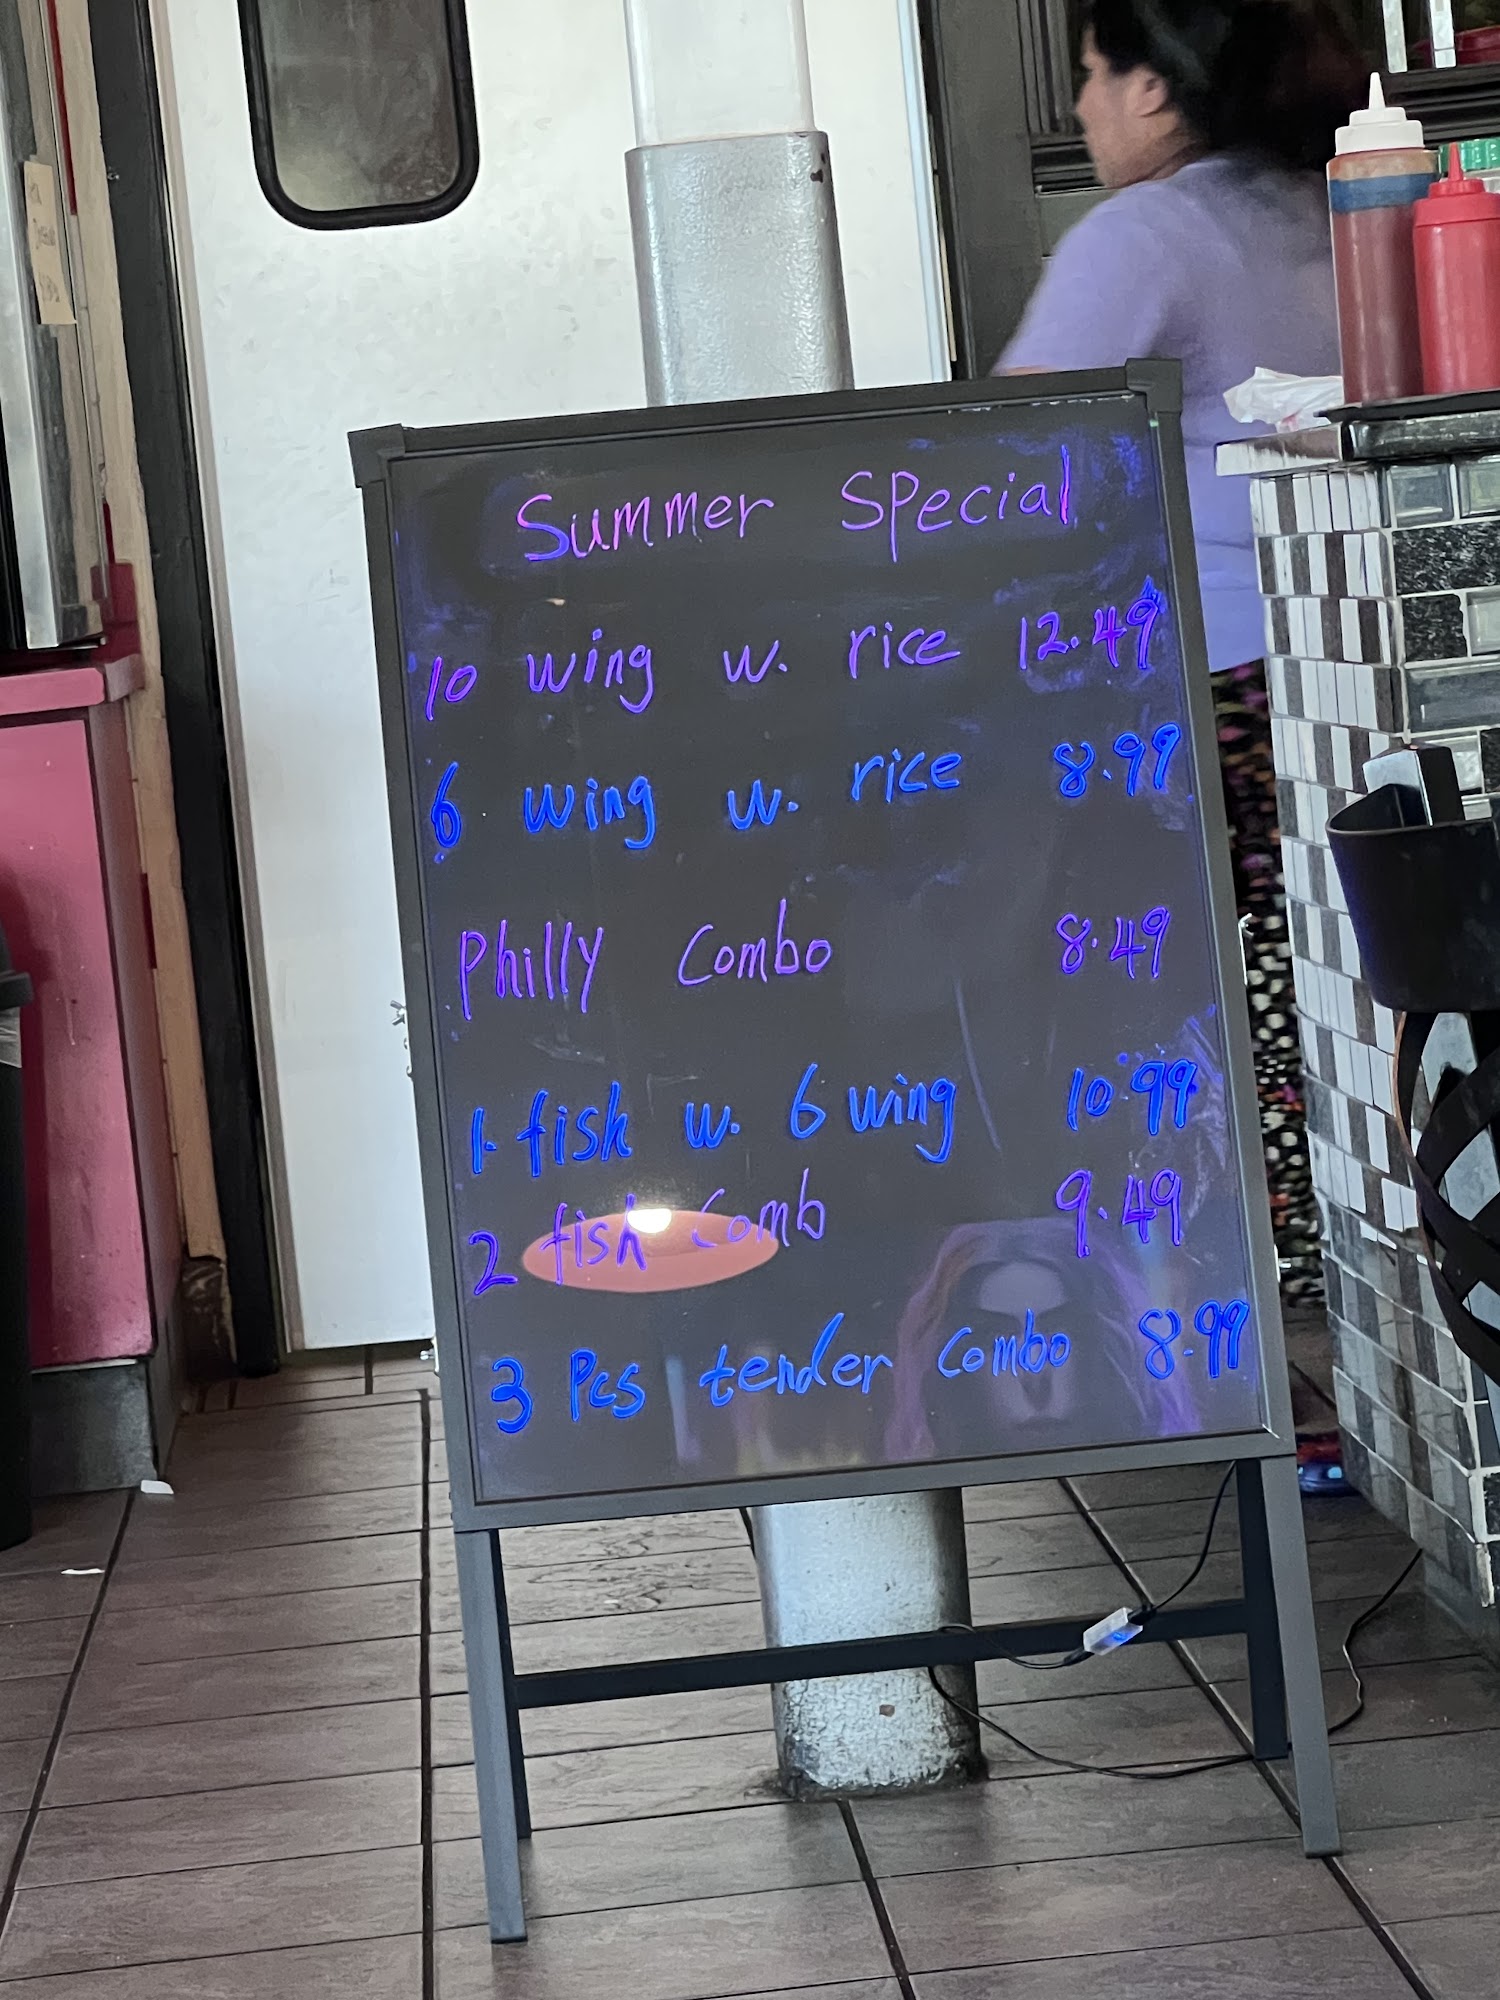 Summer Special
10 wing w. rice 12.49
6 wing w. rice 8.99
Philly Combo 8.49
1. fish w. 6 wing 10.99
2 fish comb 9.49
3 Pcs tender combo 8.99